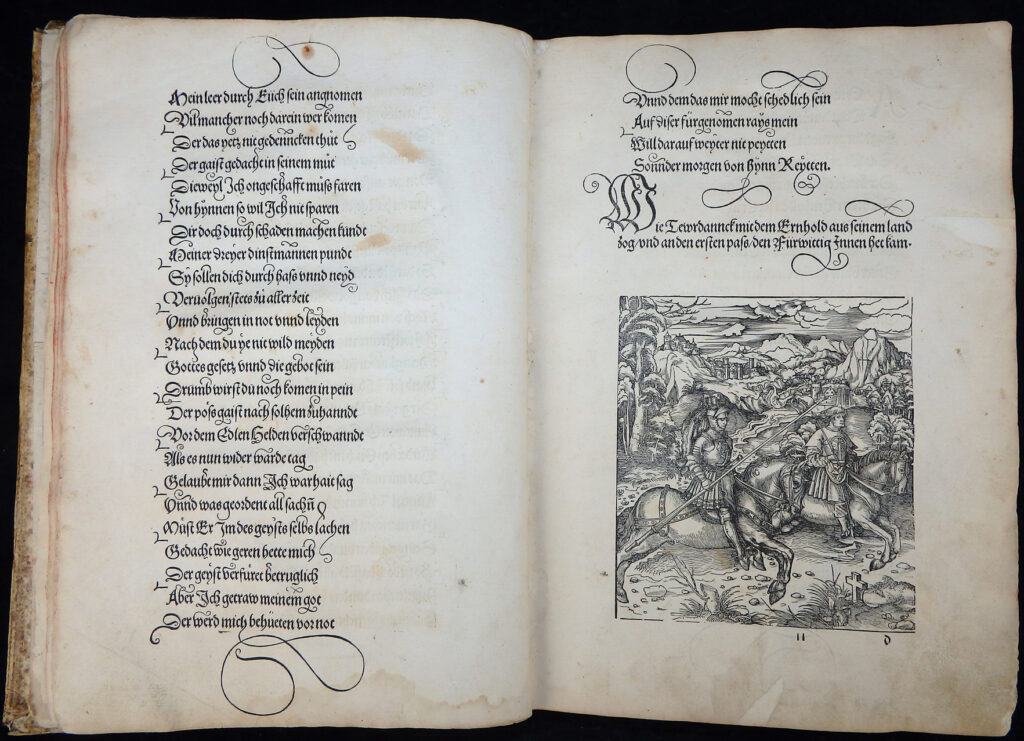 Mein leer durch Eüch sein angnomen
Vil mancher noch darein wer komen
Der das yetz nit gedenncken thůt
Der gaist gedacht in seinem můt
Dieweyl Ich ongeschafft můss faren
Von hynnen so wil Ich nit sparen
Dir doch durch schaden machen kundt
Meiner dreyer dinstmannen pundt
Sy sollen dich durch hass vnnd neyd
Veruolgen stets zů aller zeit
Vnnd bringen in not vnnd leyden
Nach dem du ye nit wild meyden
Gottes gesetz vnnd die gebot sein
Drumb wirst du noch komen in pein
Der pöss gaist nach solhem zůhanndt
Vor dem Edlen Helden verschwanndt
Als es nun wider warde tag
Gelaubt mir dann Ich warhait sag
Vnnd was geordent all sachñ
Můst Er Im des geysts selbs lachen
Gedacht wie geren hette mich
Der geyst verfüret betruglich
Aber Ich getraw meinem got
Der werd mich behüeten vor not
Vnnd dem das mir mocht schedlich sein
Auf diser fürgenomen rays mein
Will darauf weyter nit peytten
Sonnder morgen von hynn Reytten.
Wie Tewrdannck mit dem Ernhold aus seinem land
zog, vnd an den ersten pass, den Fürwittig Innen het kam.
11 d